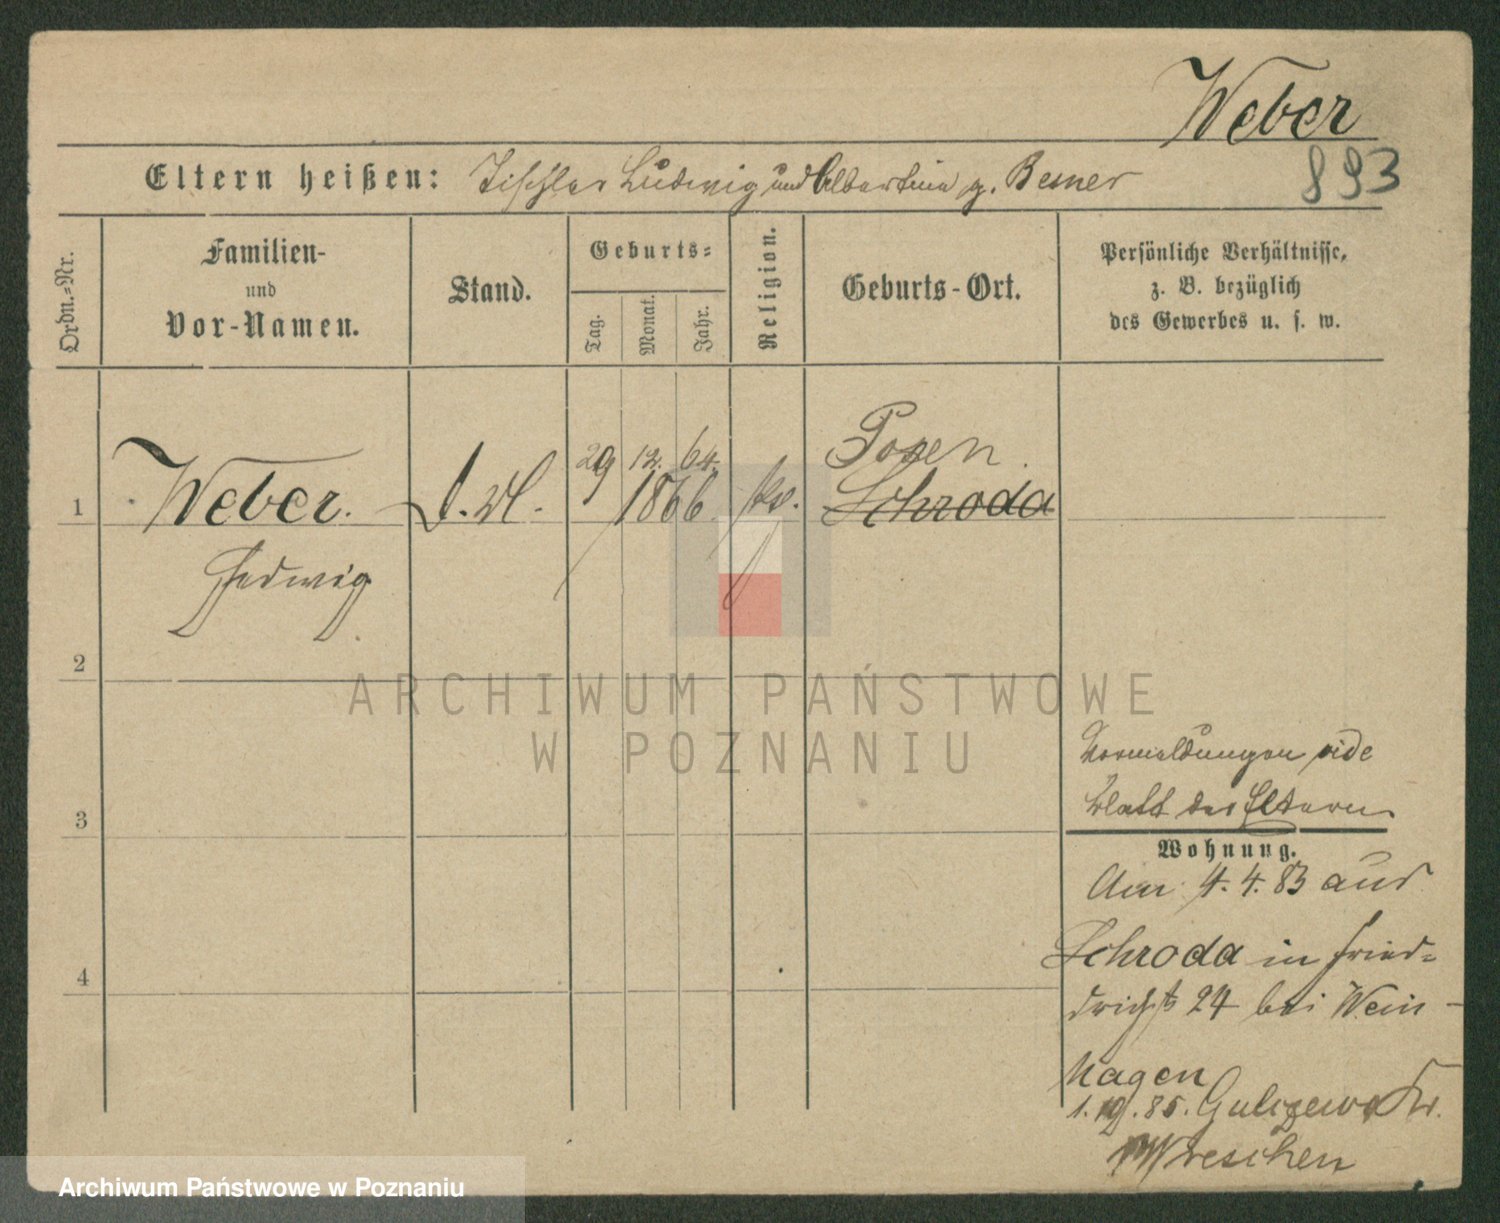 Weber
893
Eltern heißen: Tischler Ludwig und Albertine g. Besner
Ordn.-Nr.
Familien-
und
Vor-Namen.
Stand.
Geburts-
Tag.
Monat.
Jahr.
Religion.
Geburts-Ort.
Persönliche Verhältnisse,
z. B. bezüglich
des Gewerbes u. s. w.
29 12. 64. Posen
1 Weber. 1866 Schroda
Hedwig
2
ARCHIWUM PAŃSTWOWE
W POZNANIU
Vormeldungen vide
3 Blatt der Eltern
Wohnung.
Am 4.4.83 aus
Schroda in Fried-
4
drichst 24 bei Wein-
hagen
85.
Wreschen
Archiwum Państwowe w Poznaniu